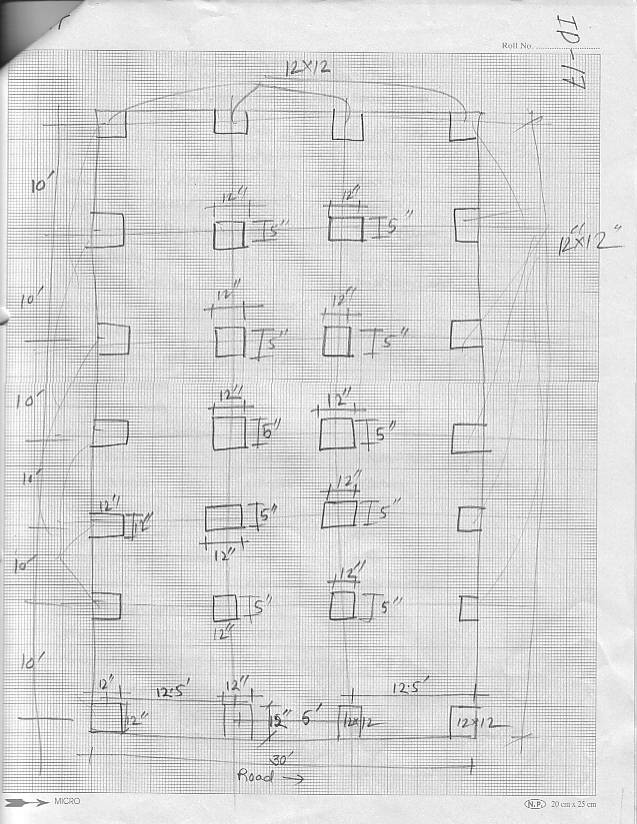 Roll No.
ID-17
12×12
10'
12" 12"
5" 5"
12"×12"
10'
12" 12"
5" 5"
10'
12" 12"
6" 5"
10'
12" 12"
12" 5" 5"
12"
10'
12"
5" 5"
12"
10'
12" 12.5' 12" 12.5'
12" 12" 5' 12×12 12×12
30'
Road →
MICRO
N.P. 20 cm x 25 cm